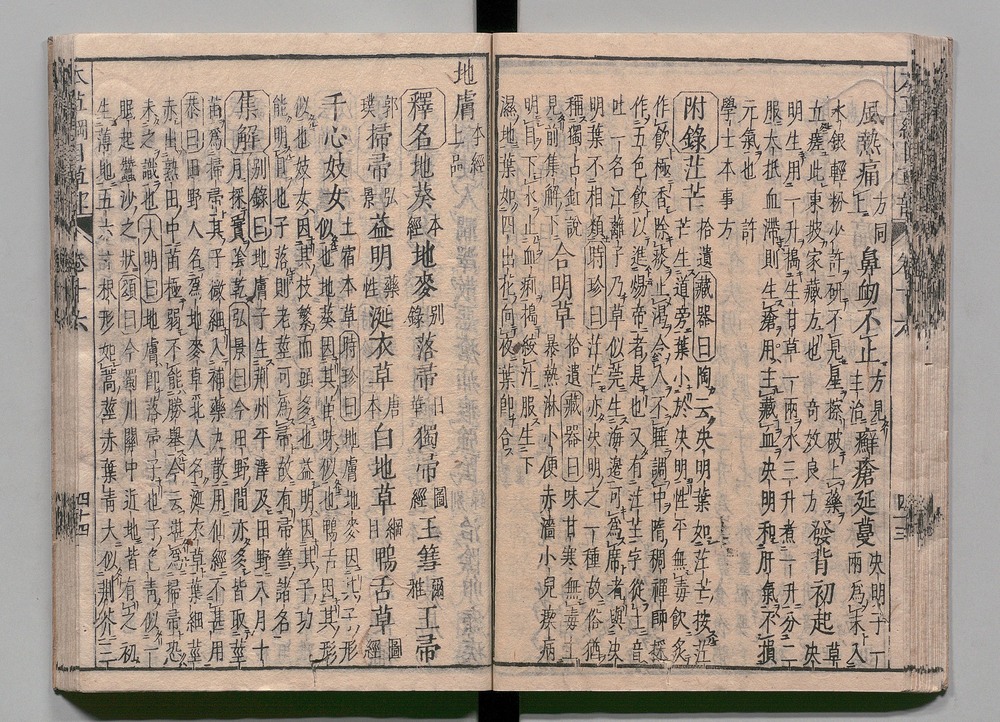 風熱痛方同上鼻衄不止方見主治癬瘡延蔓決明子一兩為末入
水銀輕粉少許研不見星擦破上藥
立瘥此東坡家藏方也奇效良方發背初起草決
明生用一升搗生甘草一兩水三升煮一升分二
服大抵血滯則生瘡用主藏血決明和肝氣不損
元氣也許
學士本事方
附錄茳芒拾遺藏器曰陶云決明葉如茳芒按茳
芒生道旁葉小於決明性平無毒飲炙
作飲極香除痰止渴令人不睡調中隋稠禪師採
作五色飲以進煬帝者是也又有茳芏字從土音
吐一名江蘺子乃草似莞生海邊可為席者與決
明葉不相類時珍曰茳芒亦決明之一種故俗猶
種獨占缸說見前集解下合明草拾遺藏器曰味甘寒無毒主
暴熱淋小便赤濇小兒瘈病
明目下水止血痢搗絞汁服生下
濕地葉如四出花向夜葉即合
地膚本經上品
釋名地葵本經地麥別錄落帚日華獨帚圖經王篲爾雅王帚
郭璞掃帚弘景益明藥性涎衣草唐本白地草綱目鴨舌草圖經
千心妓女土宿本草時珍曰地膚地麥因其子形
似也地葵因其苗味似也鴨舌因其形
似也妓女因其枝繁而頭多也益明因其子功
能明目也子落則老莖可為帚故有帚篲諸名
集解別錄曰地膚子生荊州平澤及田野八月十
月採實陰乾弘景曰今田野間亦多皆取莖
苗為掃帚其子微細入補藥丸散用仙經不甚用
恭曰田野人名為地麥草北人名涎衣草葉細莖
赤出熟田中苗極弱不能勝舉今云堪為掃帚恐
未之識也大明曰地膚即落帚子也子色青似一
眠起蠶沙之狀頌曰今蜀川關中近地皆有之初
生薄地五六寸根形如蒿莖赤葉青大似荊芥三
四十三
四十四